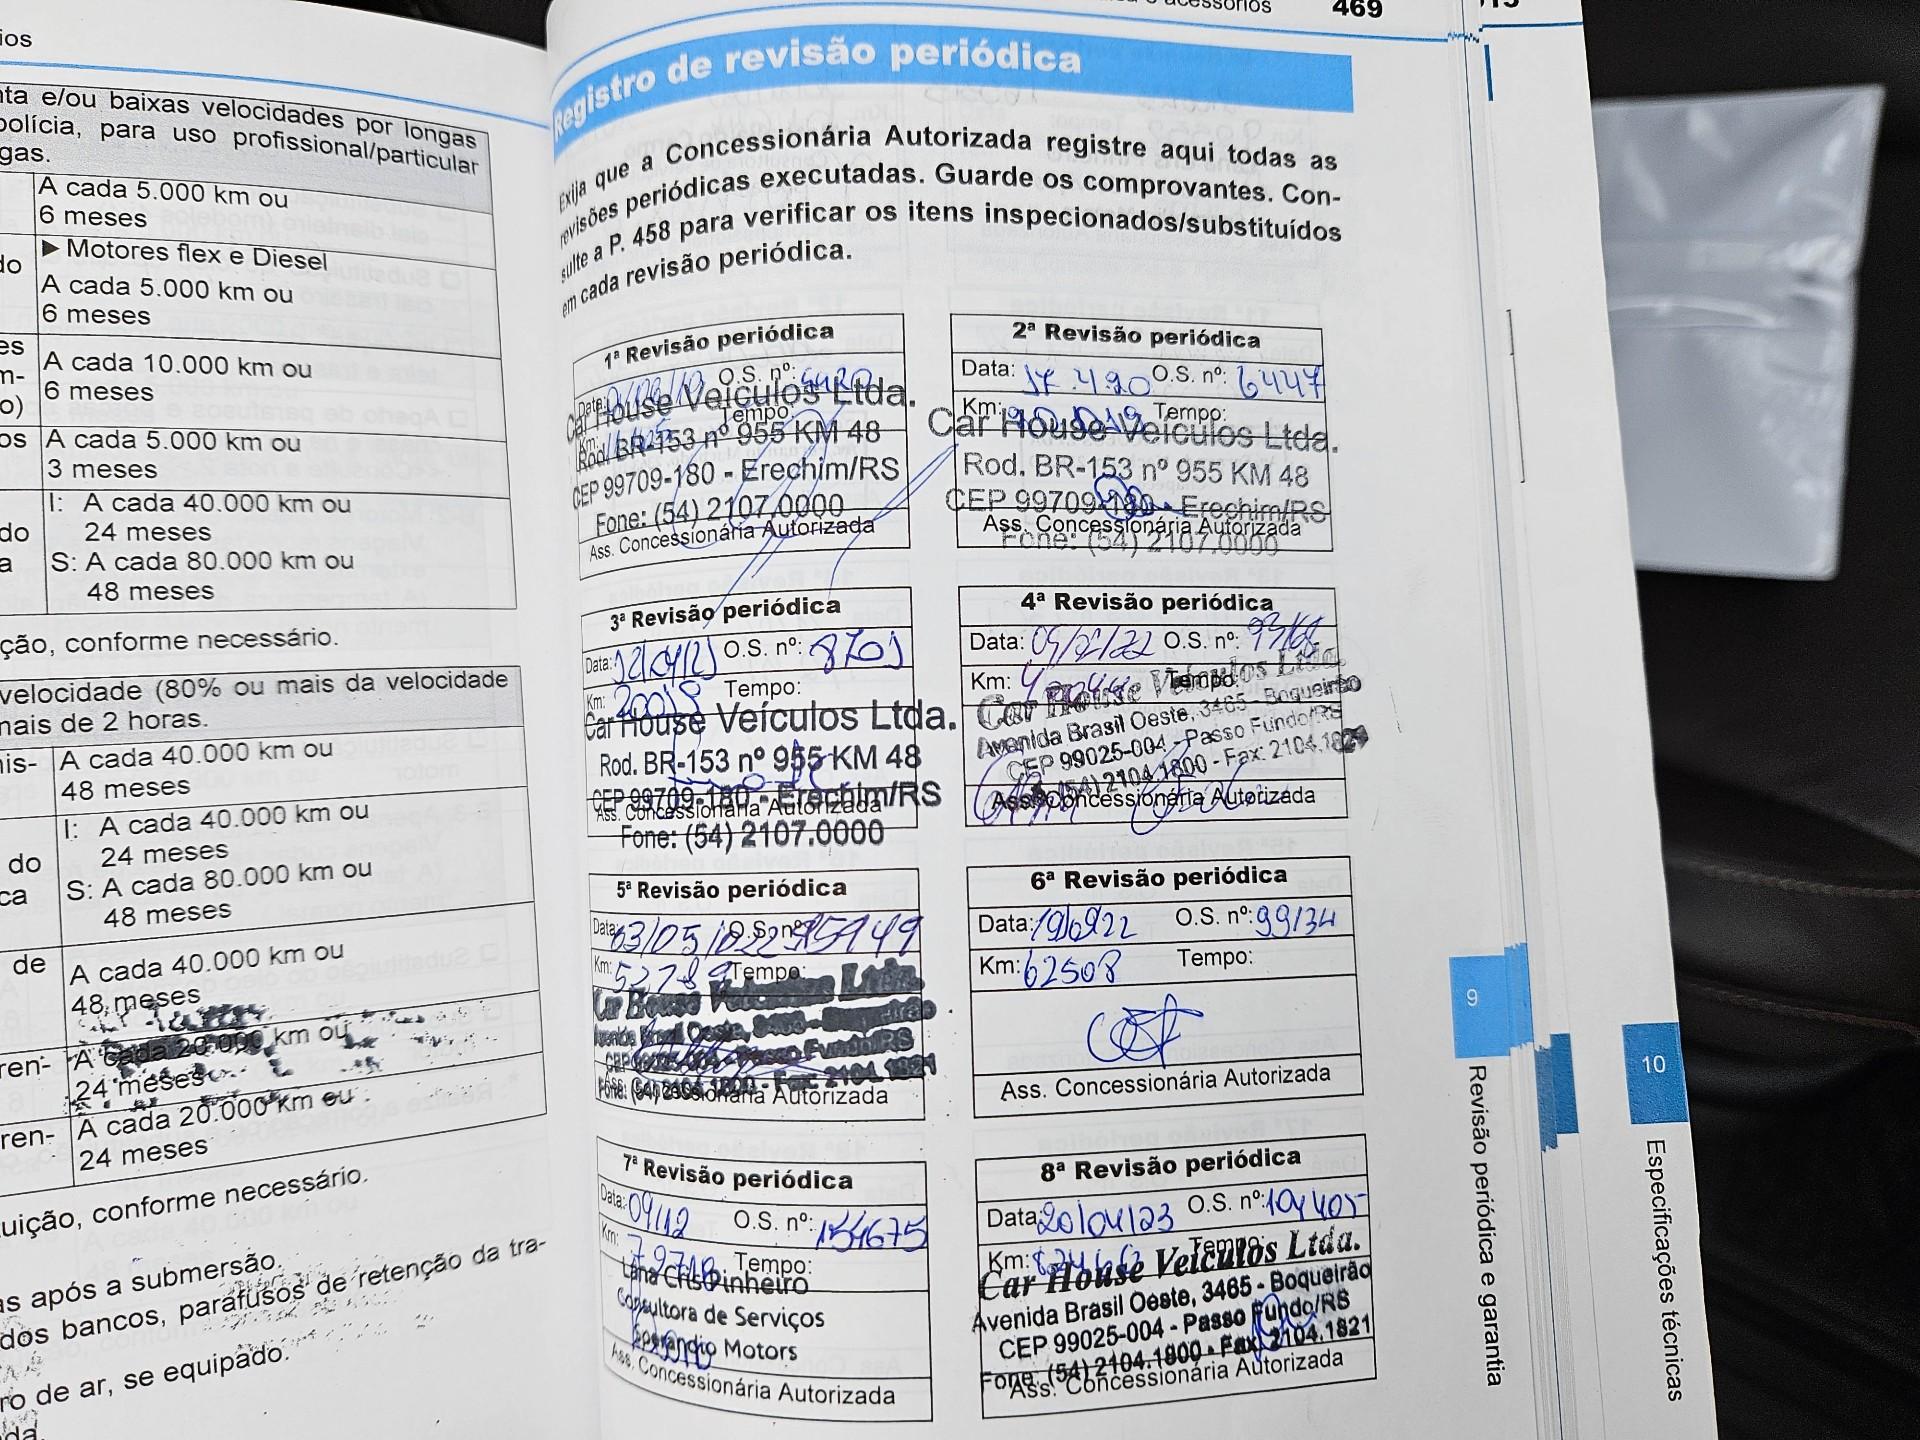 ios
nta e/ou baixas velocidades por longas
polícia, para uso profissional/particular
gas.
A cada 5.000 km ou
6 meses
do
▶ Motores flex e Diesel
A cada 5.000 km ou
6 meses
es
m-
o)
A cada 10.000 km ou
6 meses
os
A cada 5.000 km ou
3 meses
do
a
I: A cada 40.000 km ou
24 meses
S: A cada 80.000 km ou
48 meses
ção, conforme necessário.
velocidade (80% ou mais da velocidade
mais de 2 horas.
nis-
A cada 40.000 km ou
48 meses
do
ca
I: A cada 40.000 km ou
24 meses
S: A cada 80.000 km ou
48 meses
de
A cada 40.000 km ou
48 meses
ren-
A cada 20.000 km ou
24 meses
ren-
A cada 20.000 km ou
24 meses
uição, conforme necessário.
as após a submersão.
dos bancos, parafusos de retenção da tra-
ro de ar, se equipado.
da.
acessórios
469
Registro de revisão periódica
Exija que a Concessionária Autorizada registre aqui todas as
revisões periódicas executadas. Guarde os comprovantes. Con-
sulte a P. 458 para verificar os itens inspecionados/substituídos
em cada revisão periódica.
1ª Revisão periódica
Data: O.S. nº:
Km: Tempo:
Car House Veículos Ltda.
Rod. BR-153 nº 955 KM 48
CEP 99709-180 - Erechim/RS
Fone: (54) 2107.0000
Ass. Concessionária Autorizada
2ª Revisão periódica
Data: O.S. nº: 6447
Km: Tempo:
Car House Veículos Ltda.
Rod. BR-153 nº 955 KM 48
CEP 99709-180 - Erechim/RS
Ass. Concessionária Autorizada
Fone: (54) 2107.0000
3ª Revisão periódica
Data: O.S. nº: 8701
Km: Tempo:
Car House Veículos Ltda.
Rod. BR-153 nº 955 KM 48
CEP 99709-180 - Erechim/RS
Ass. Concessionária Autorizada
Fone: (54) 2107.0000
4ª Revisão periódica
Data: O.S. nº:
Km: Tempo:
Car House Veículos Ltda.
Avenida Brasil Oeste, 3465 - Boqueirão
CEP 99025-004 - Passo Fundo/RS
(54) 2104.1800 - Fax: 2104.1821
Ass. Concessionária Autorizada
5ª Revisão periódica
Data: 03/05/022 O.S. nº: 95949
Km: 52789 Tempo:
Car House Veículos Ltda.
Avenida Brasil Oeste, 3465 - Boqueirão
CEP 99025-004 - Passo Fundo/RS
Fone: (54) 2104.1800 - Fax: 2104.1821
Ass. Concessionária Autorizada
6ª Revisão periódica
Data: O.S. nº: 99134
Km: 62508 Tempo:
Ass. Concessionária Autorizada
7ª Revisão periódica
Data: 09/12 O.S. nº: 154675
Km: Tempo:
Lana Cris Pinheiro
Consultora de Serviços
Sperandio Motors
Ass. Concessionária Autorizada
8ª Revisão periódica
Data: 20/04/23 O.S. nº: 104405
Km: Tempo:
Car House Veículos Ltda.
Avenida Brasil Oeste, 3465 - Boqueirão
CEP 99025-004 - Passo Fundo/RS
Fone: (54) 2104.1800 - Fax: 2104.1821
Ass. Concessionária Autorizada
9
Revisão periódica e garantia
10
Especificações técnicas